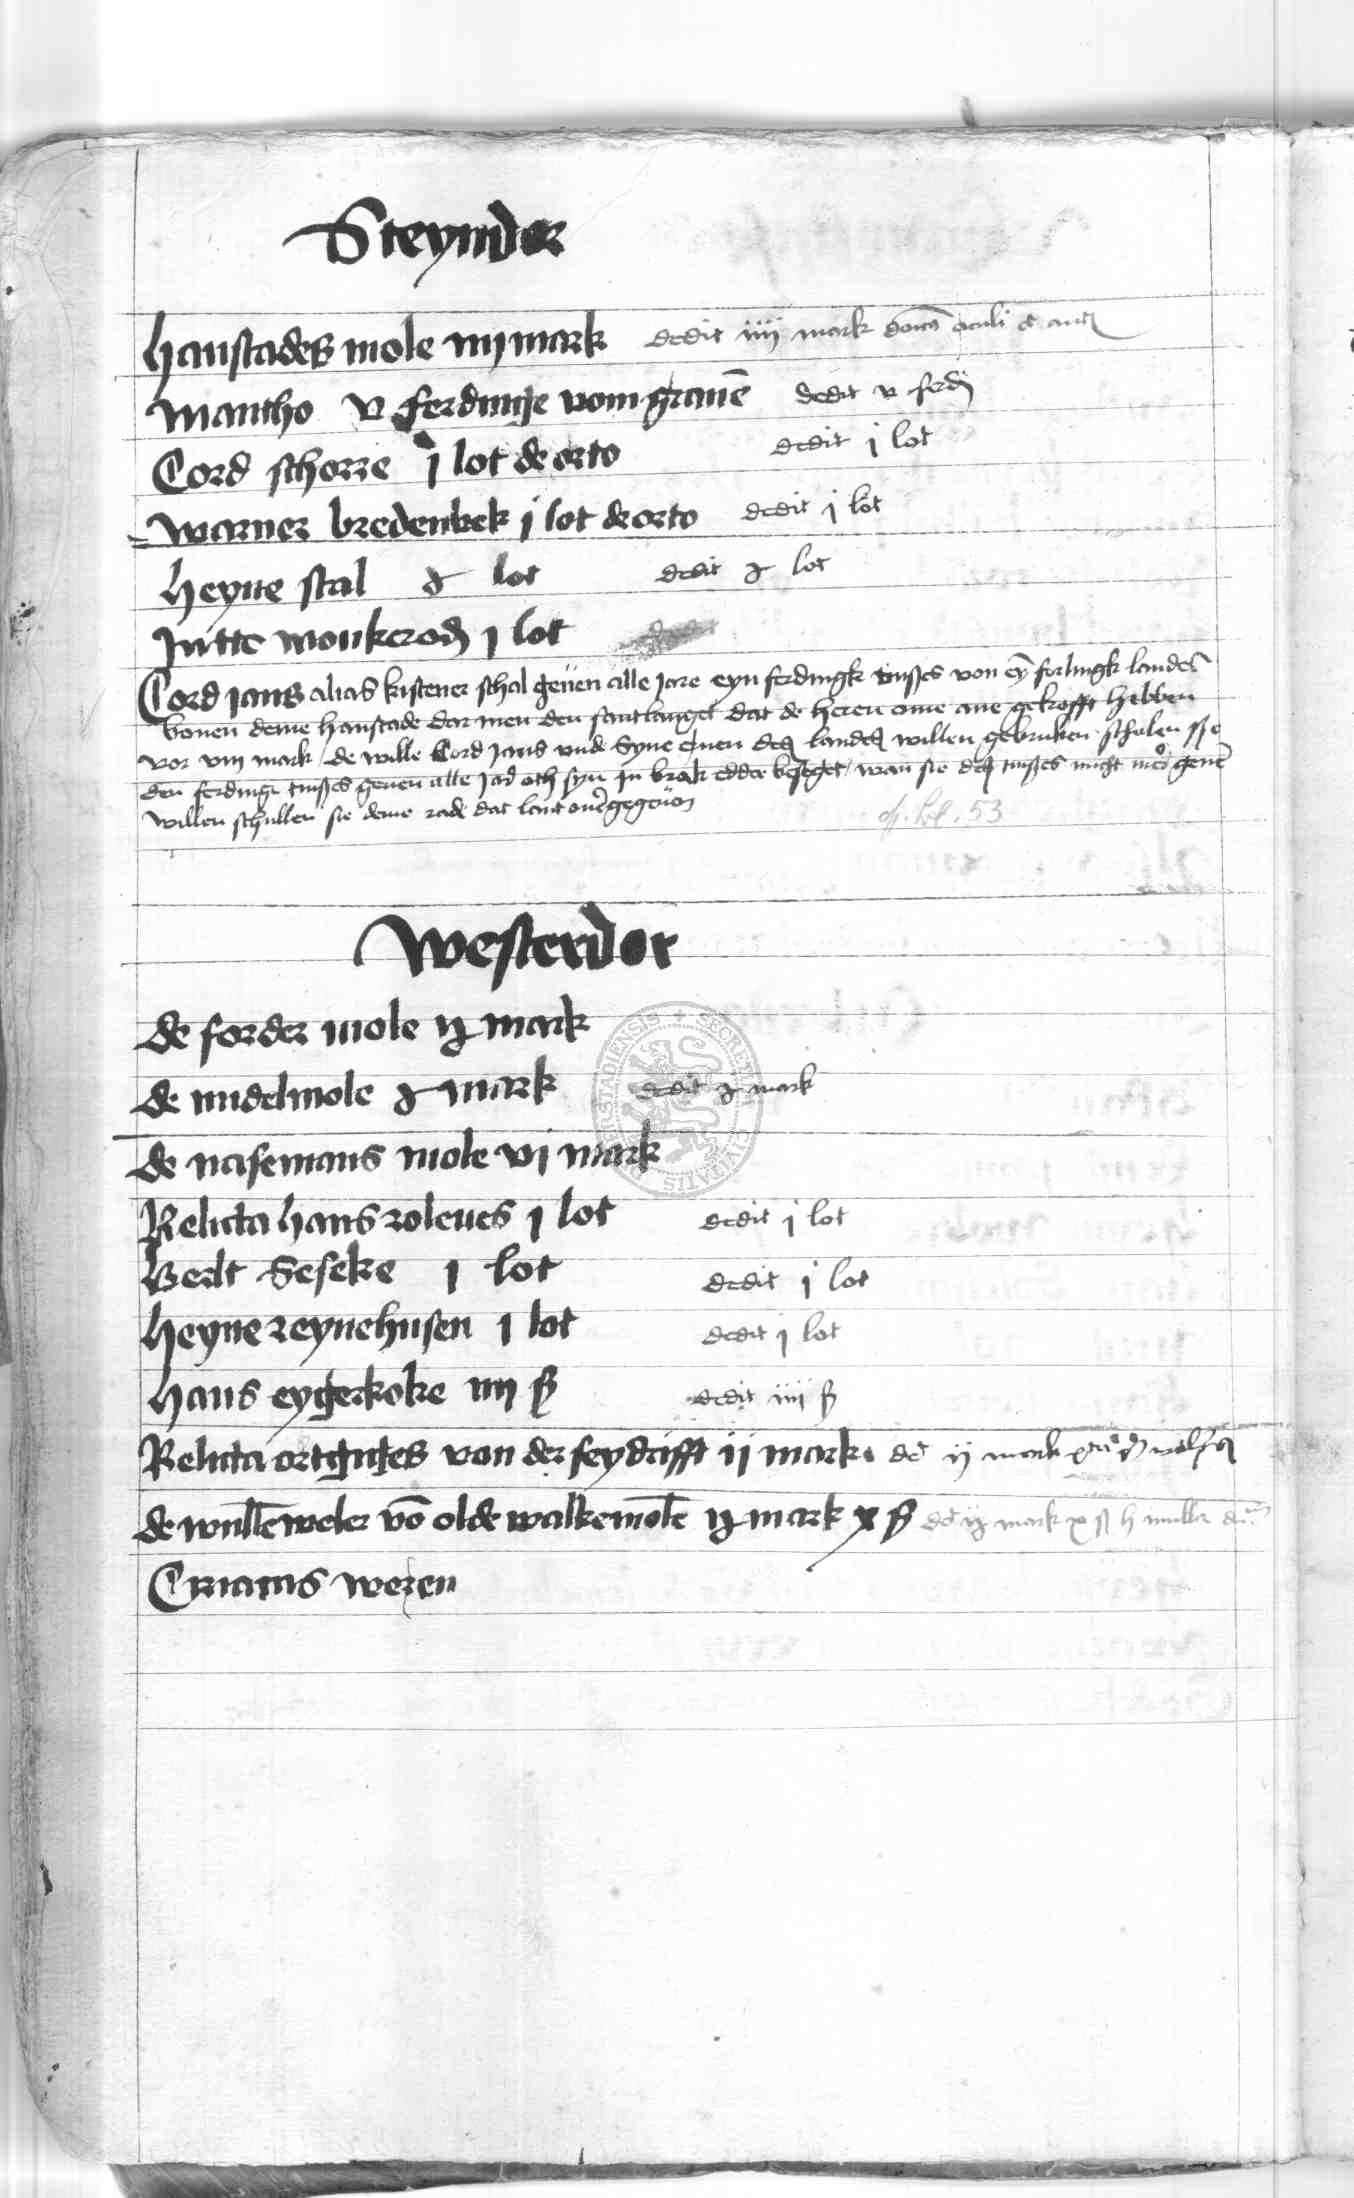 Steyndor
hanstades mole iiij mark dedit iiij mark oculi
Mantho v ferdinge vom grauē dedit v ferdͫ
Cord schorre j lot de orto dedit j lot
Warner bredenbek j lot de orto dedit j lot
heyne stal lot dedit lot
Jutte monkerod j lot
Cord jans alias kistener schal geuen alle jare eyn ferdingk tinßes von eȳ forlingk landes
bouen deme hanstade dar men den santlanget dat de heren ome ane gekofft hebben
vor viij mark de wille Cord jans vnde syne eruen des landes willen gebruken schulen sse
den ferdingk tinßes geuen alle jar oth syn in brak edder beseget wan sie des tinßes nicht mer geuē
willen schullen sie deme rade dat lant ouergegeuen
cf. bl. 53
Westerdor
de forder mole ij mark
de middelmole mark dedit mark
de nasemans mole vj mark
Relicta hans roleues j lot dedit j lot
Berlt Seseke j lot dedit j lot
heyne reynehusen j lot dedit j lot
hans eygerkoke iiij ß dedit iiij ß
Relicta ortgutes von der seydrifft ij mark dt ij mark
de wullēweuer vō olde walkemole mark x ß dt mark x ß h muller
Ciriacus weren
SECRETUM CIVITATIS DUDERSTADIENSIS